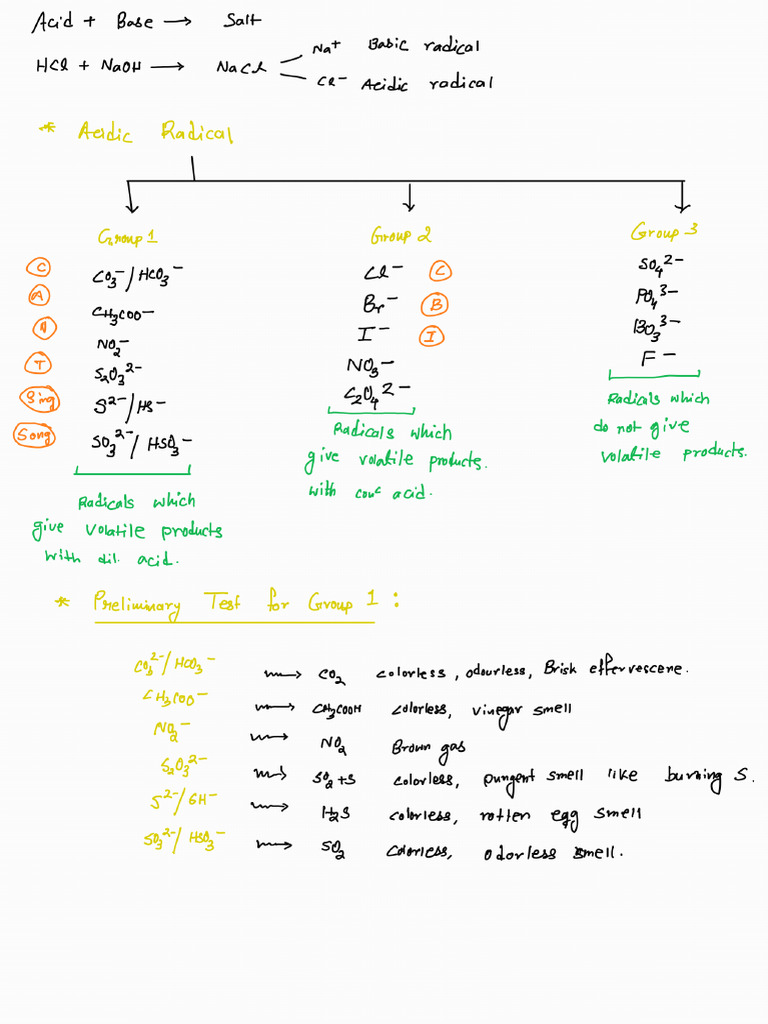 Acid + Base → Salt
HCl + NaOH → NaCl
Na⁺ Basic radical
Cl⁻ Acidic radical
* Acidic Radical
Group 1
C CO₃⁻/HCO₃⁻
A CH₃COO⁻
N NO₂⁻
T S₂O₃²⁻
Sing S²⁻/HS⁻
Song SO₃²⁻/HSO₃⁻
Radicals which
give volatile products
with dil. acid.
Group 2
Cl⁻ C
Br⁻ B
I⁻ I
NO₃⁻
C₂O₄²⁻
Radicals which
give volatile products.
with conc acid.
Group 3
SO₄²⁻
PO₄³⁻
BO₃³⁻
F⁻
Radicals which
do not give
volatile products.
* Preliminary Test for Group 1 :
CO₃²⁻/HCO₃⁻ → CO₂ colorless, odourless, Brisk effervescene.
CH₃COO⁻ → CH₃COOH colorless, vinegar smell
NO₂⁻ → NO₂ Brown gas
S₂O₃²⁻ → SO₂+S colorless, pungent smell like burning S.
S²⁻/SH⁻ → H₂S colorless, rotten egg smell
SO₃²⁻/HSO₃⁻ → SO₂ colorless, odorless smell.